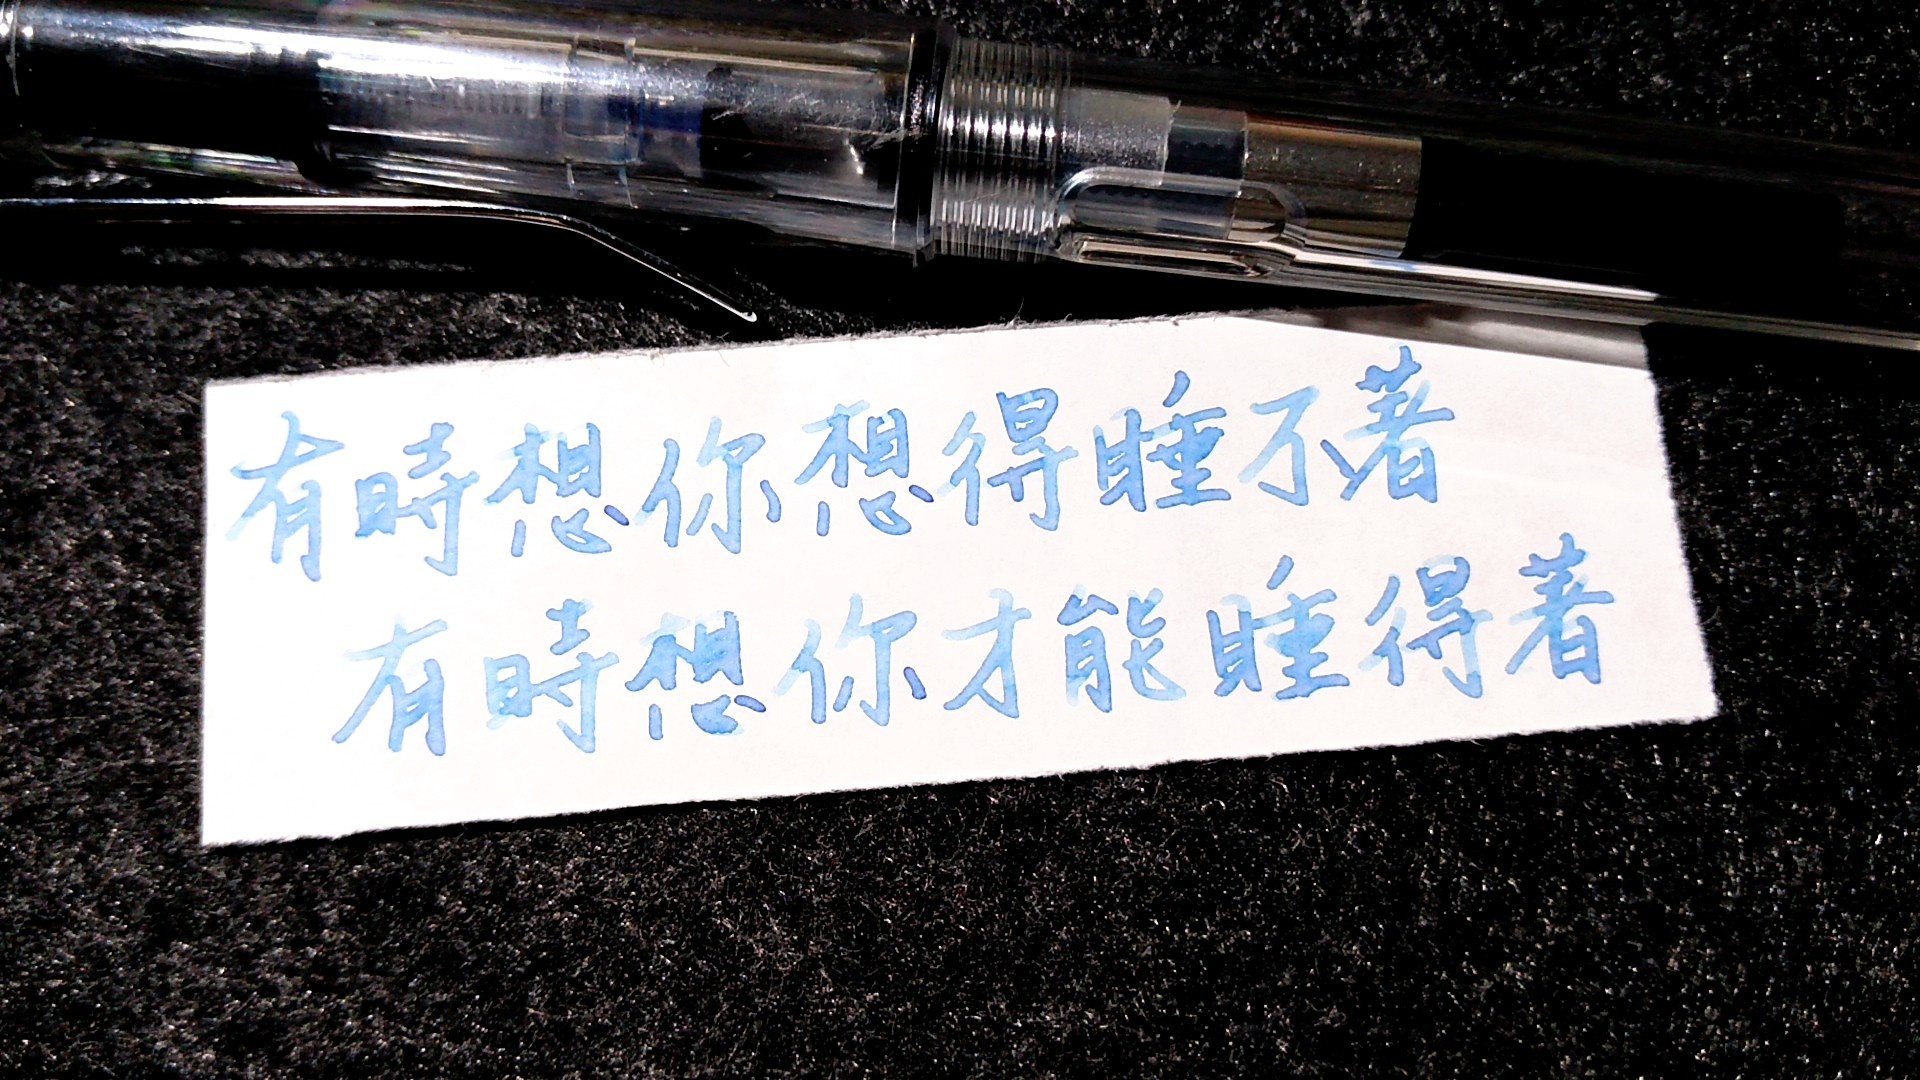 有時想你想得睡不著
有時想你才能睡得著